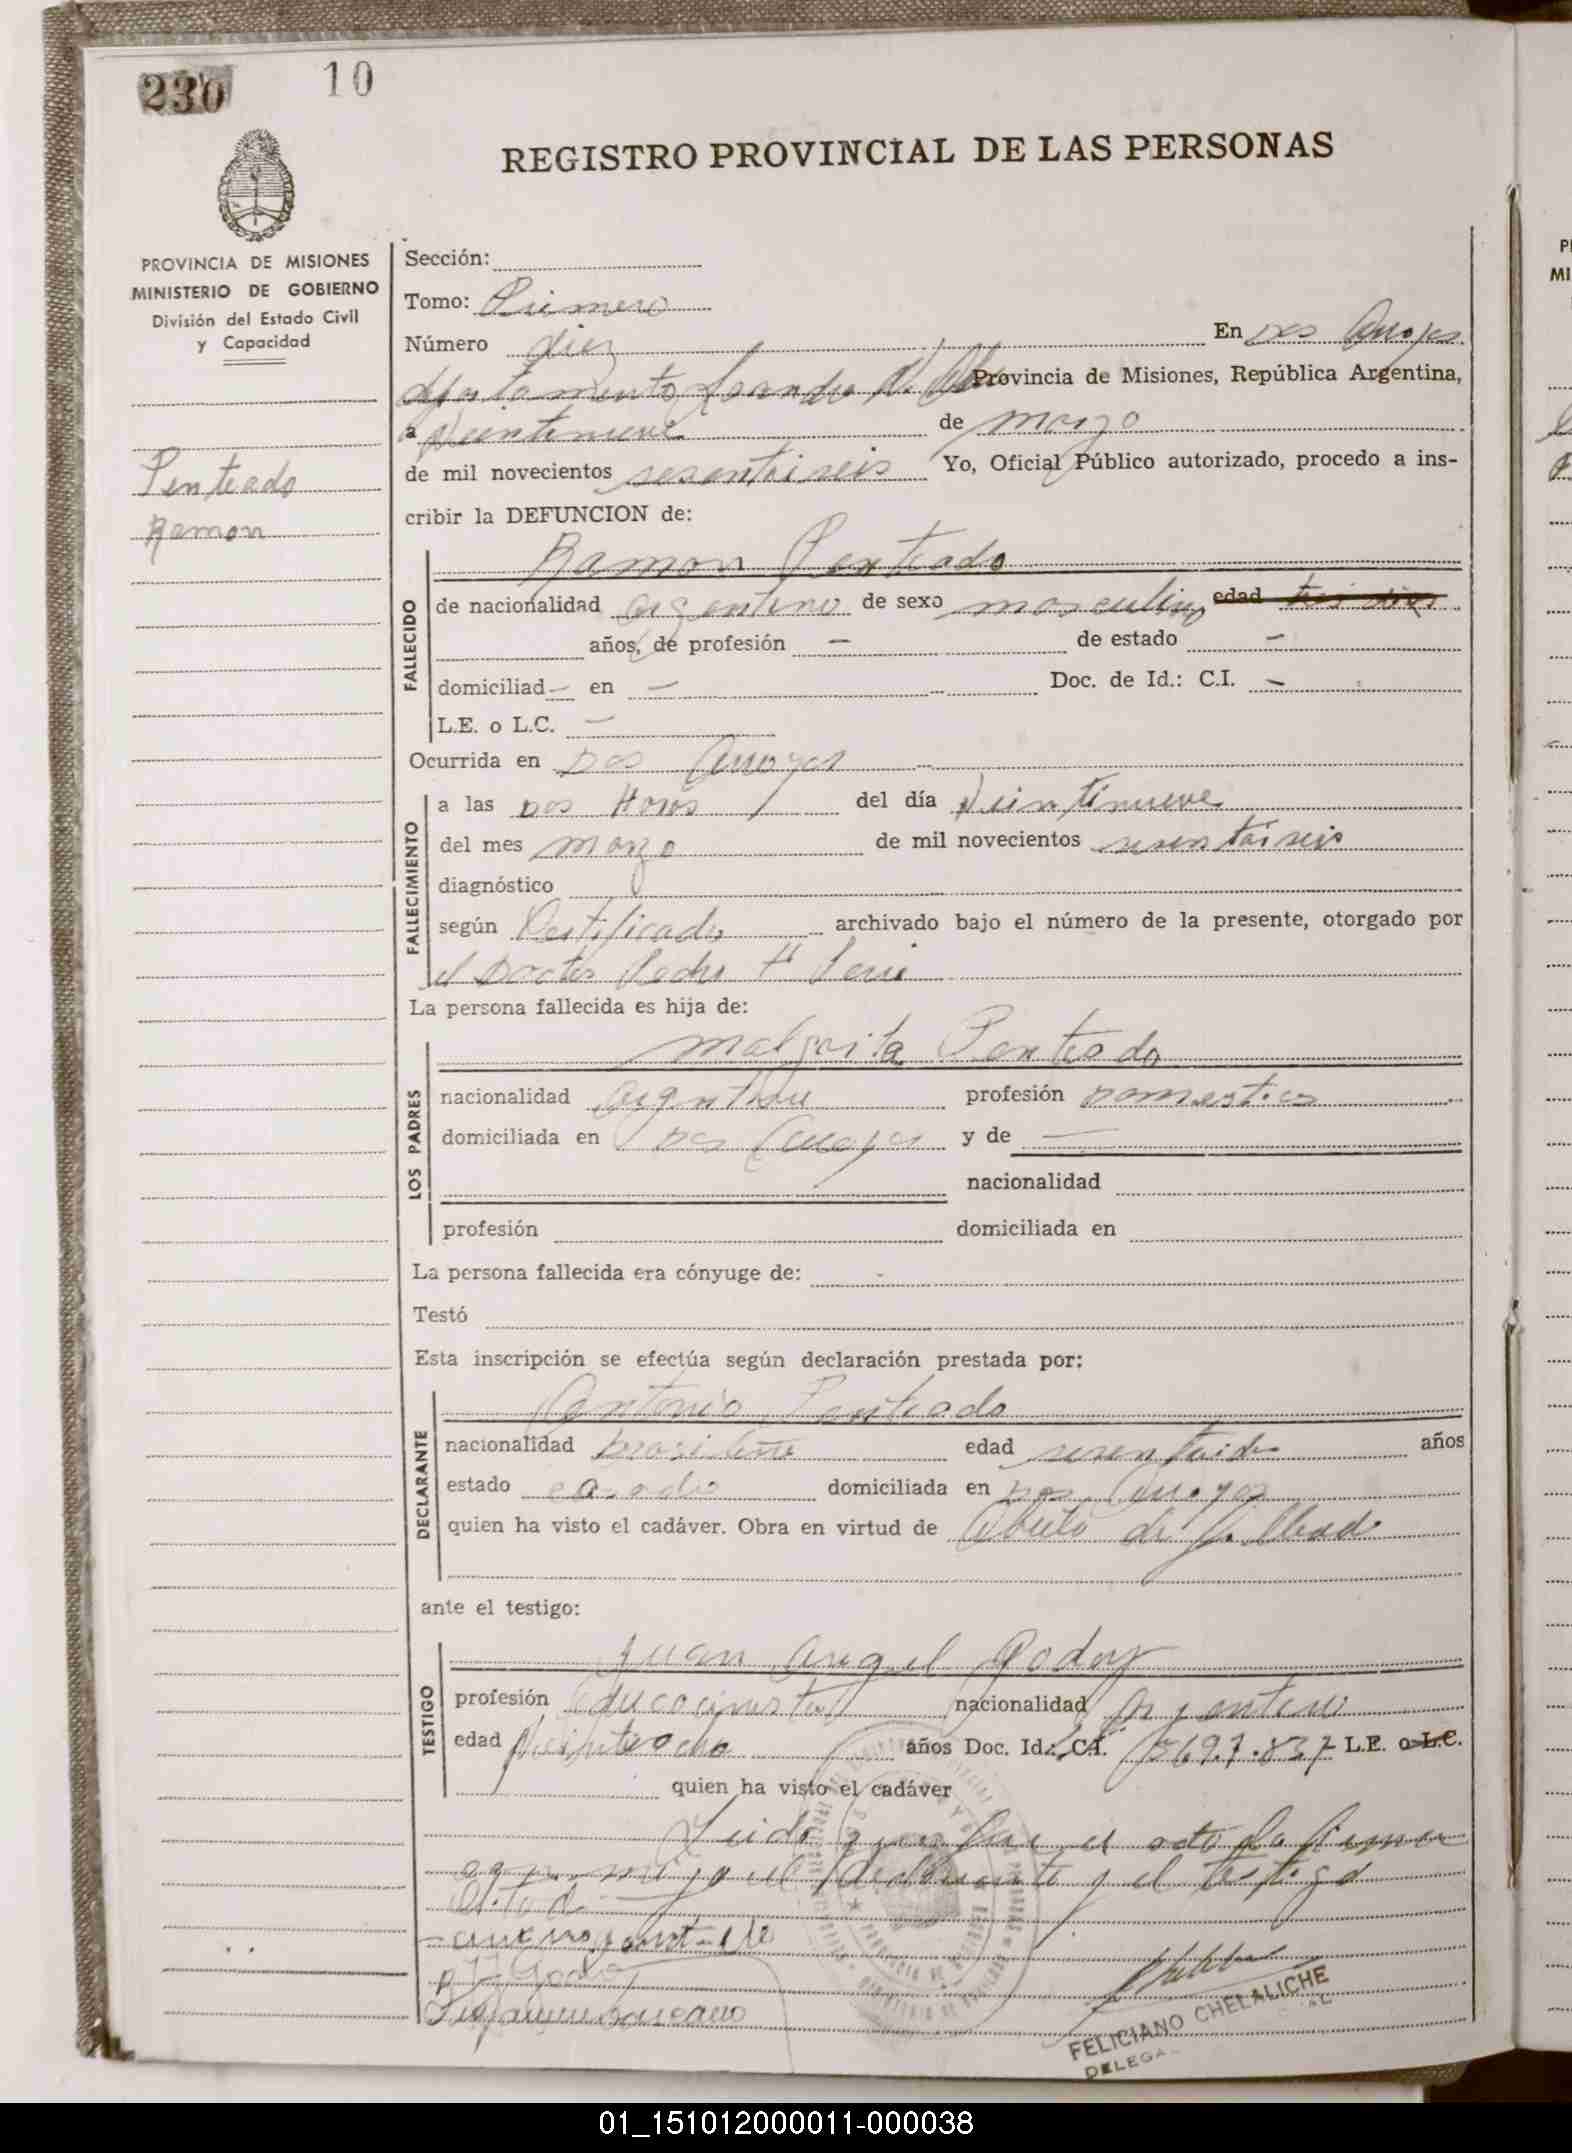 230 10
REGISTRO PROVINCIAL DE LAS PERSONAS
PROVINCIA DE MISIONES
MINISTERIO DE GOBIERNO
División del Estado Civil
y Capacidad
Penteado
Ramon
Sección:
Tomo: Primero
Número diez En Dos Arroyos
departamento Leandro N. Alem Provincia de Misiones, República Argentina,
a Veintinueve de marzo
de mil novecientos sesentaiseis Yo, Oficial Público autorizado, procedo a ins-
cribir la DEFUNCION de:
Ramon Penteado
FALLECIDO
de nacionalidad argentino de sexo masculino, edad
años, de profesión — de estado —
domiciliad— en — Doc. de Id.: C.I. —
L.E. o L.C. —
Ocurrida en Dos Arroyos
FALLECIMIENTO
a las Dos Horas del día Veintinueve
del mes marzo de mil novecientos sesentaiseis
diagnóstico
según Certificado archivado bajo el número de la presente, otorgado por
el Doctor Pedro H
La persona fallecida es hija de:
LOS PADRES
Malgarita Penteado
nacionalidad argentina profesión Domestica
domiciliada en Dos Arroyos y de —
nacionalidad
profesión domiciliada en
La persona fallecida era cónyuge de:
Testó
Esta inscripción se efectúa según declaración prestada por:
DECLARANTE
Antonio Penteado
nacionalidad brasileño edad sesentaidos años
estado casado domiciliada en Dos Arroyos
quien ha visto el cadáver. Obra en virtud de Abuelo de
ante el testigo:
TESTIGO
Juan Angel Godoy
profesión nacionalidad argentino
edad Veintiocho años Doc. Id.: C.I. 7.697.837 L.E. o L.C.
quien ha visto el cadáver
Leido que fue el acto la firman
conmigo el declarante y el testigo
citado
FELICIANO CHELALICHE
DELEGA
01_151012000011-000038